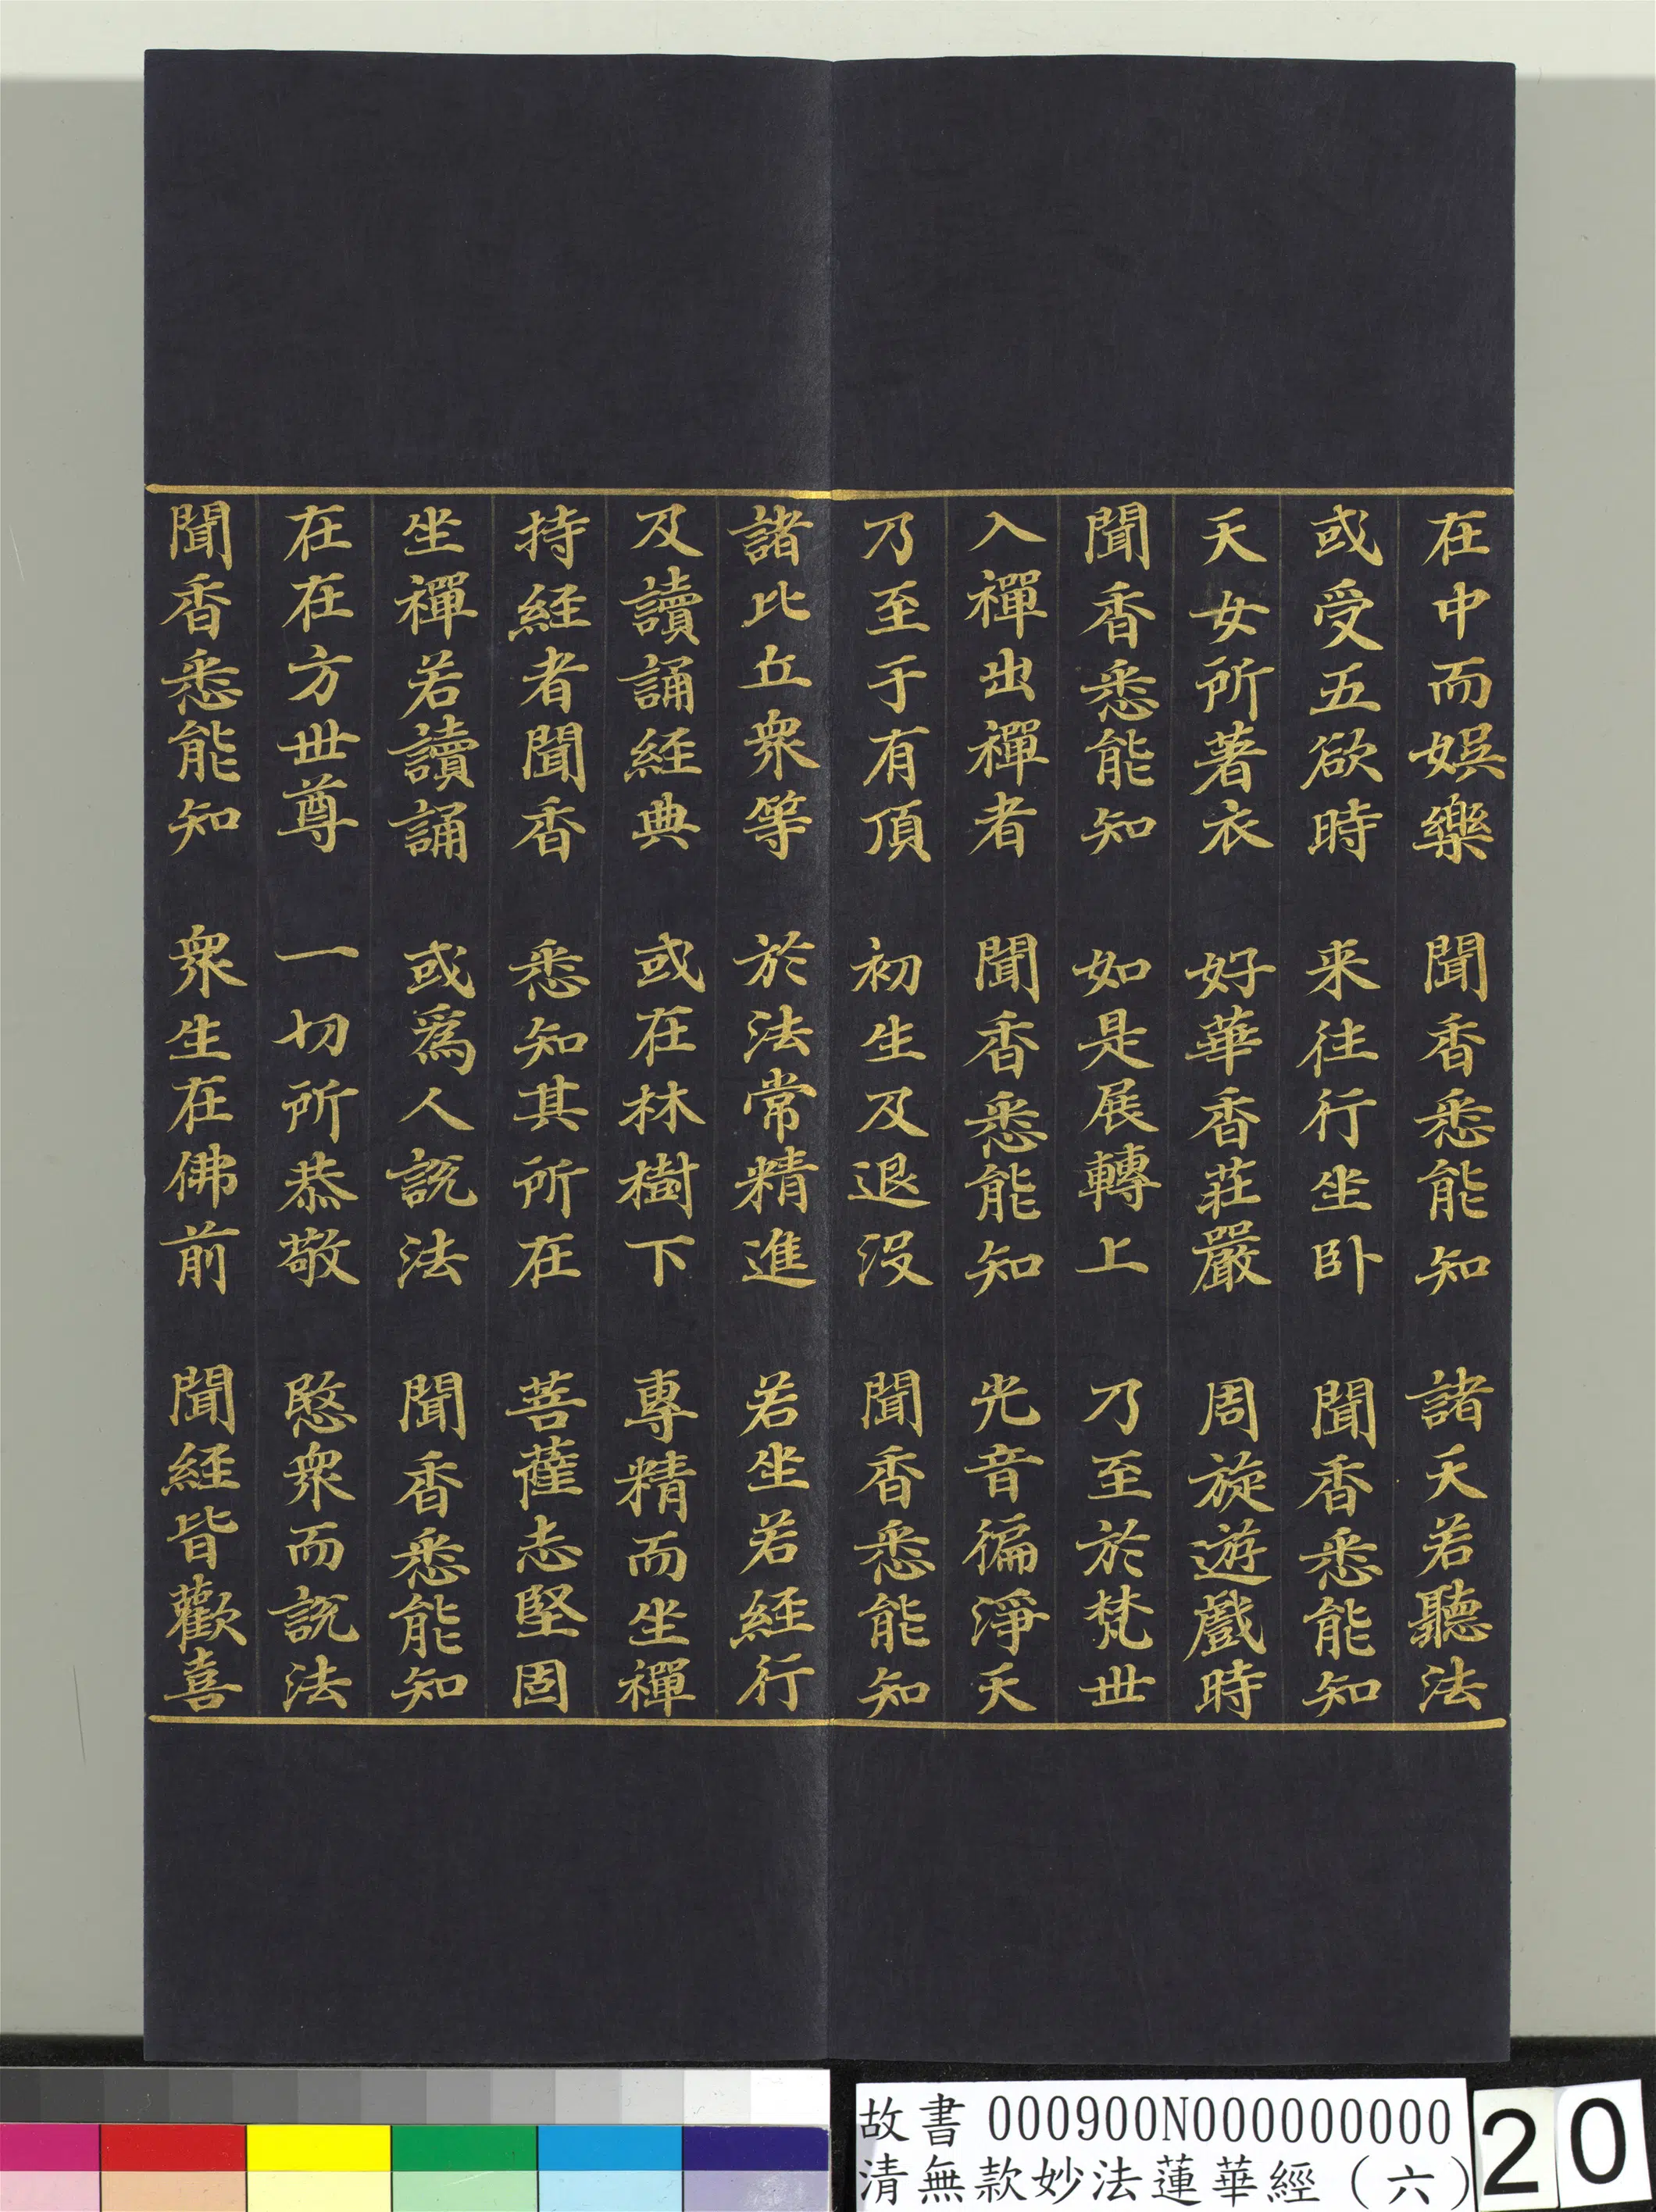 在中而娛樂　聞香悉能知　諸天若聽法
或受五欲時　来往行坐卧　聞香悉能知
天女所著衣　好華香莊嚴　周旋遊戲時
聞香悉能知　如是展轉上　乃至於梵世
入禪出禪者　聞香悉能知　光音徧淨天
乃至于有頂　初生及退沒　聞香悉能知
諸比丘衆等　於法常精進　若坐若経行
及讀誦経典　或在林樹下　專精而坐禪
持経者聞香　悉知其所在　菩薩志堅固
坐禪若讀誦　或爲人說法　聞香悉能知
在在方世尊　一切所恭敬　愍衆而說法
聞香悉能知　衆生在佛前　聞経皆歡喜
故書 000900N000000000
清無款妙法蓮華經（六）
20